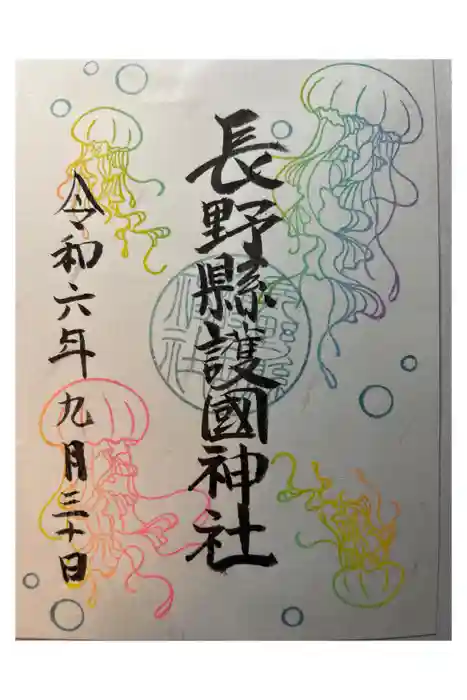 長野縣護國神社
令和六年九月三十日